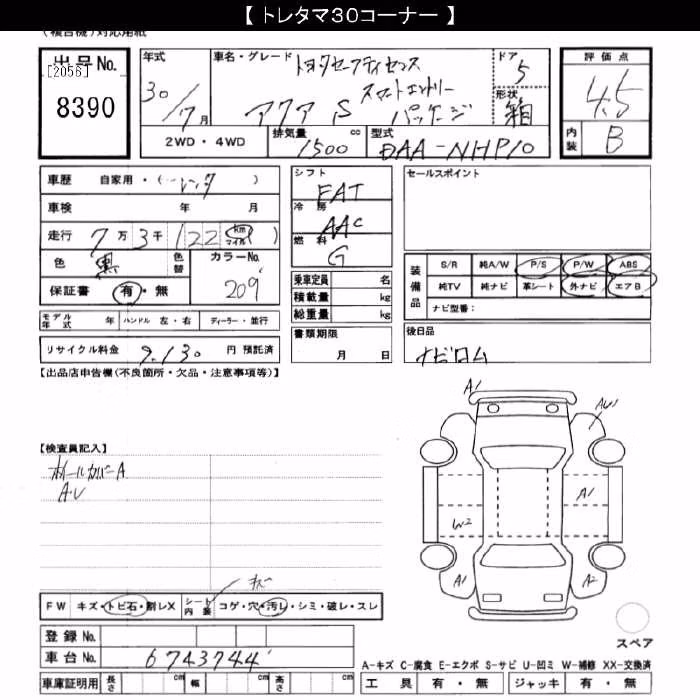 【 トレタマ30コーナー 】
(複合機)対応用紙
出品No.
[2056]
8390
年式
30/7月
車名・グレード
トヨタセーフティセンス
アクア S スマートエントリーパッケージ
ドア
5
形状
箱
評価点
4.5
内装
B
2WD・4WD
排気量 1500 cc
型式 DAA-NHP10
車歴 自家用・(レンタ)
車検 年 月
走行 7万3千122 km マイル )
色 黒 色替 カラーNo. 209
保証書 有・無
モデル年式 年 ハンドル 左・右 ディーラー・並行
リサイクル料金 9,130 円 預託済
シフト
FAT
冷房
AAC
燃料
G
乗車定員 名
積載量 kg
総重量 kg
書類期限
月 日
セールスポイント
装備品
S/R 純A/W P/S P/W ABS
純TV 純ナビ 革シート 外ナビ エアB
ナビ型番:
後日品
ナビロム
【出品店申告欄(不良箇所・欠品・注意事項等)】
【検査員記入】
ホイールカバーA
A.U
A1
AU1
A1
W2
A1
A2
スペア
キズ
FW キズ・トビ石・割レX シート内装 コゲ・穴・汚レ・シミ・破レ・スレ
登録No.
車台No. 6743744
車庫証明用 長さ cm 幅 cm 高さ cm
A-キズ C-腐食 E-エクボ S-サビ U-凹ミ W-補修 XX-交換済
工具 有・無 ジャッキ 有・無